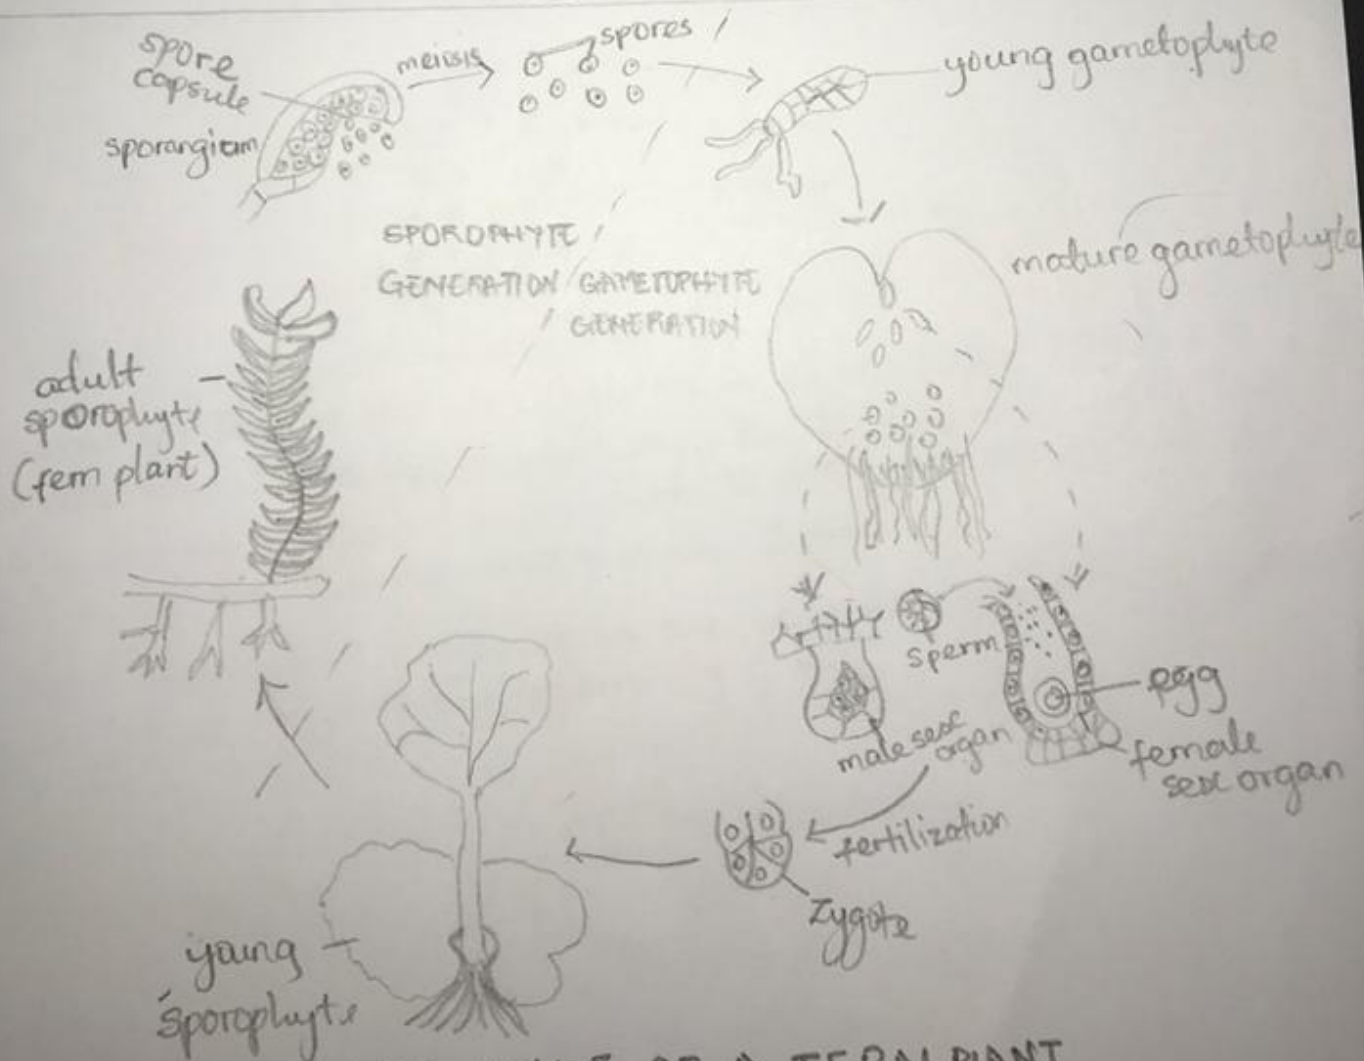 spore
capsule
sporangium
meiosis
spores
young gametophyte
SPOROPHYTE
GENERATION
GAMETOPHYTE
GENERATION
mature gametophyte
adult
sporophyte
(fern plant)
sperm
egg
male sex
organ
female
sex organ
fertilization
zygote
young
sporophyte
OF A FERN PLANT